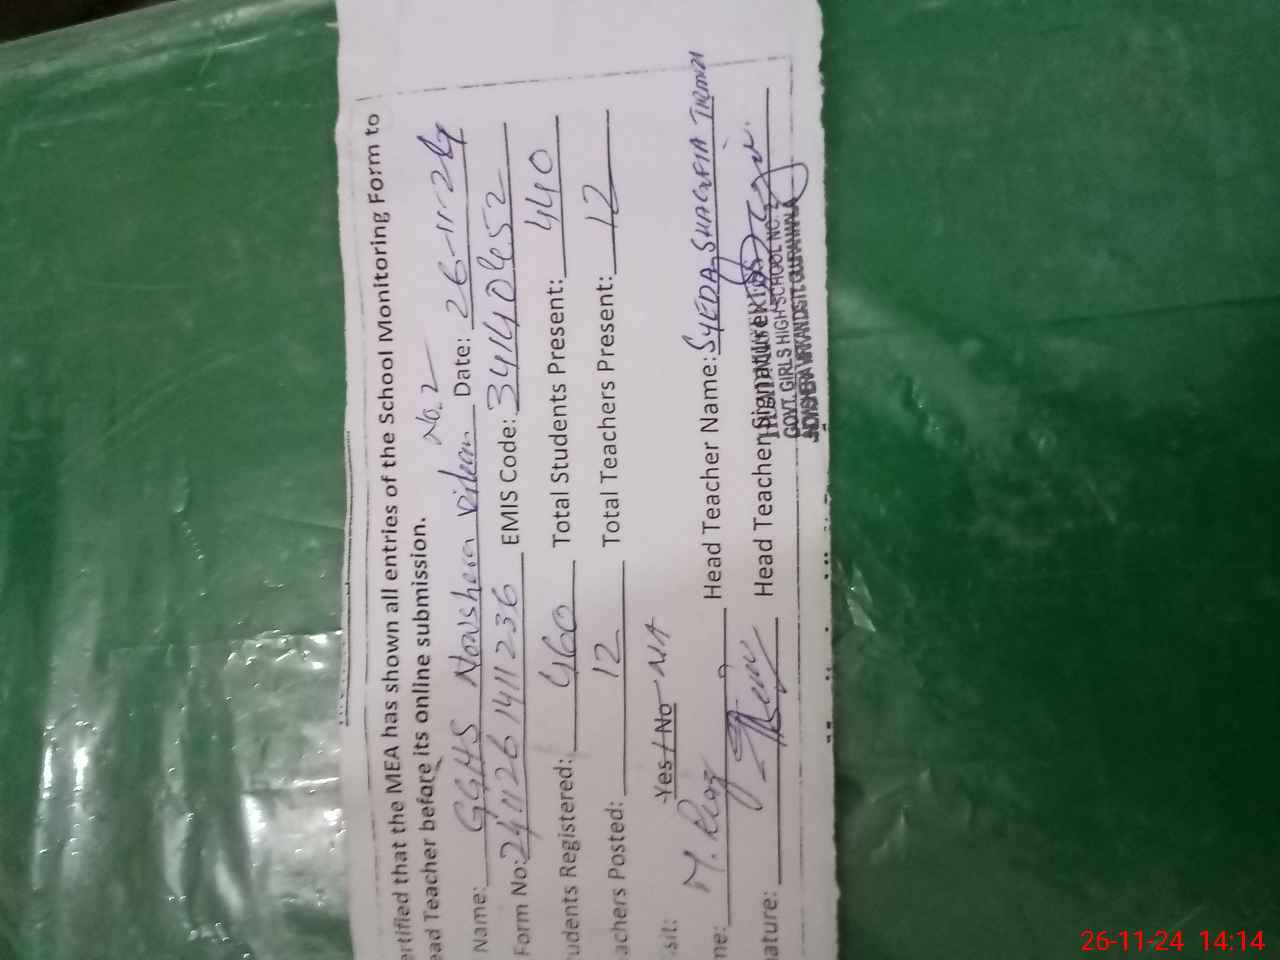 ertified that the MEA has shown all entries of the School Monitoring Form to
ead Teacher before its online submission.
Name: GGHS Nowshera Virkan No. 2 Date: 26-11-24
Form No: 241126141 1236 EMIS Code: 34140452
udents Registered: 460 Total Students Present: 440
achers Posted: 12 Total Teachers Present: 12
sit: Yes / No NA
me: M. Riaz Head Teacher Name: SYEDA SHAGUFTA TIRMIZI
ature: Head Teacher Signature:
GOVT. GIRLS HIGH SCHOOL NO. 2
26-11-24 14:14